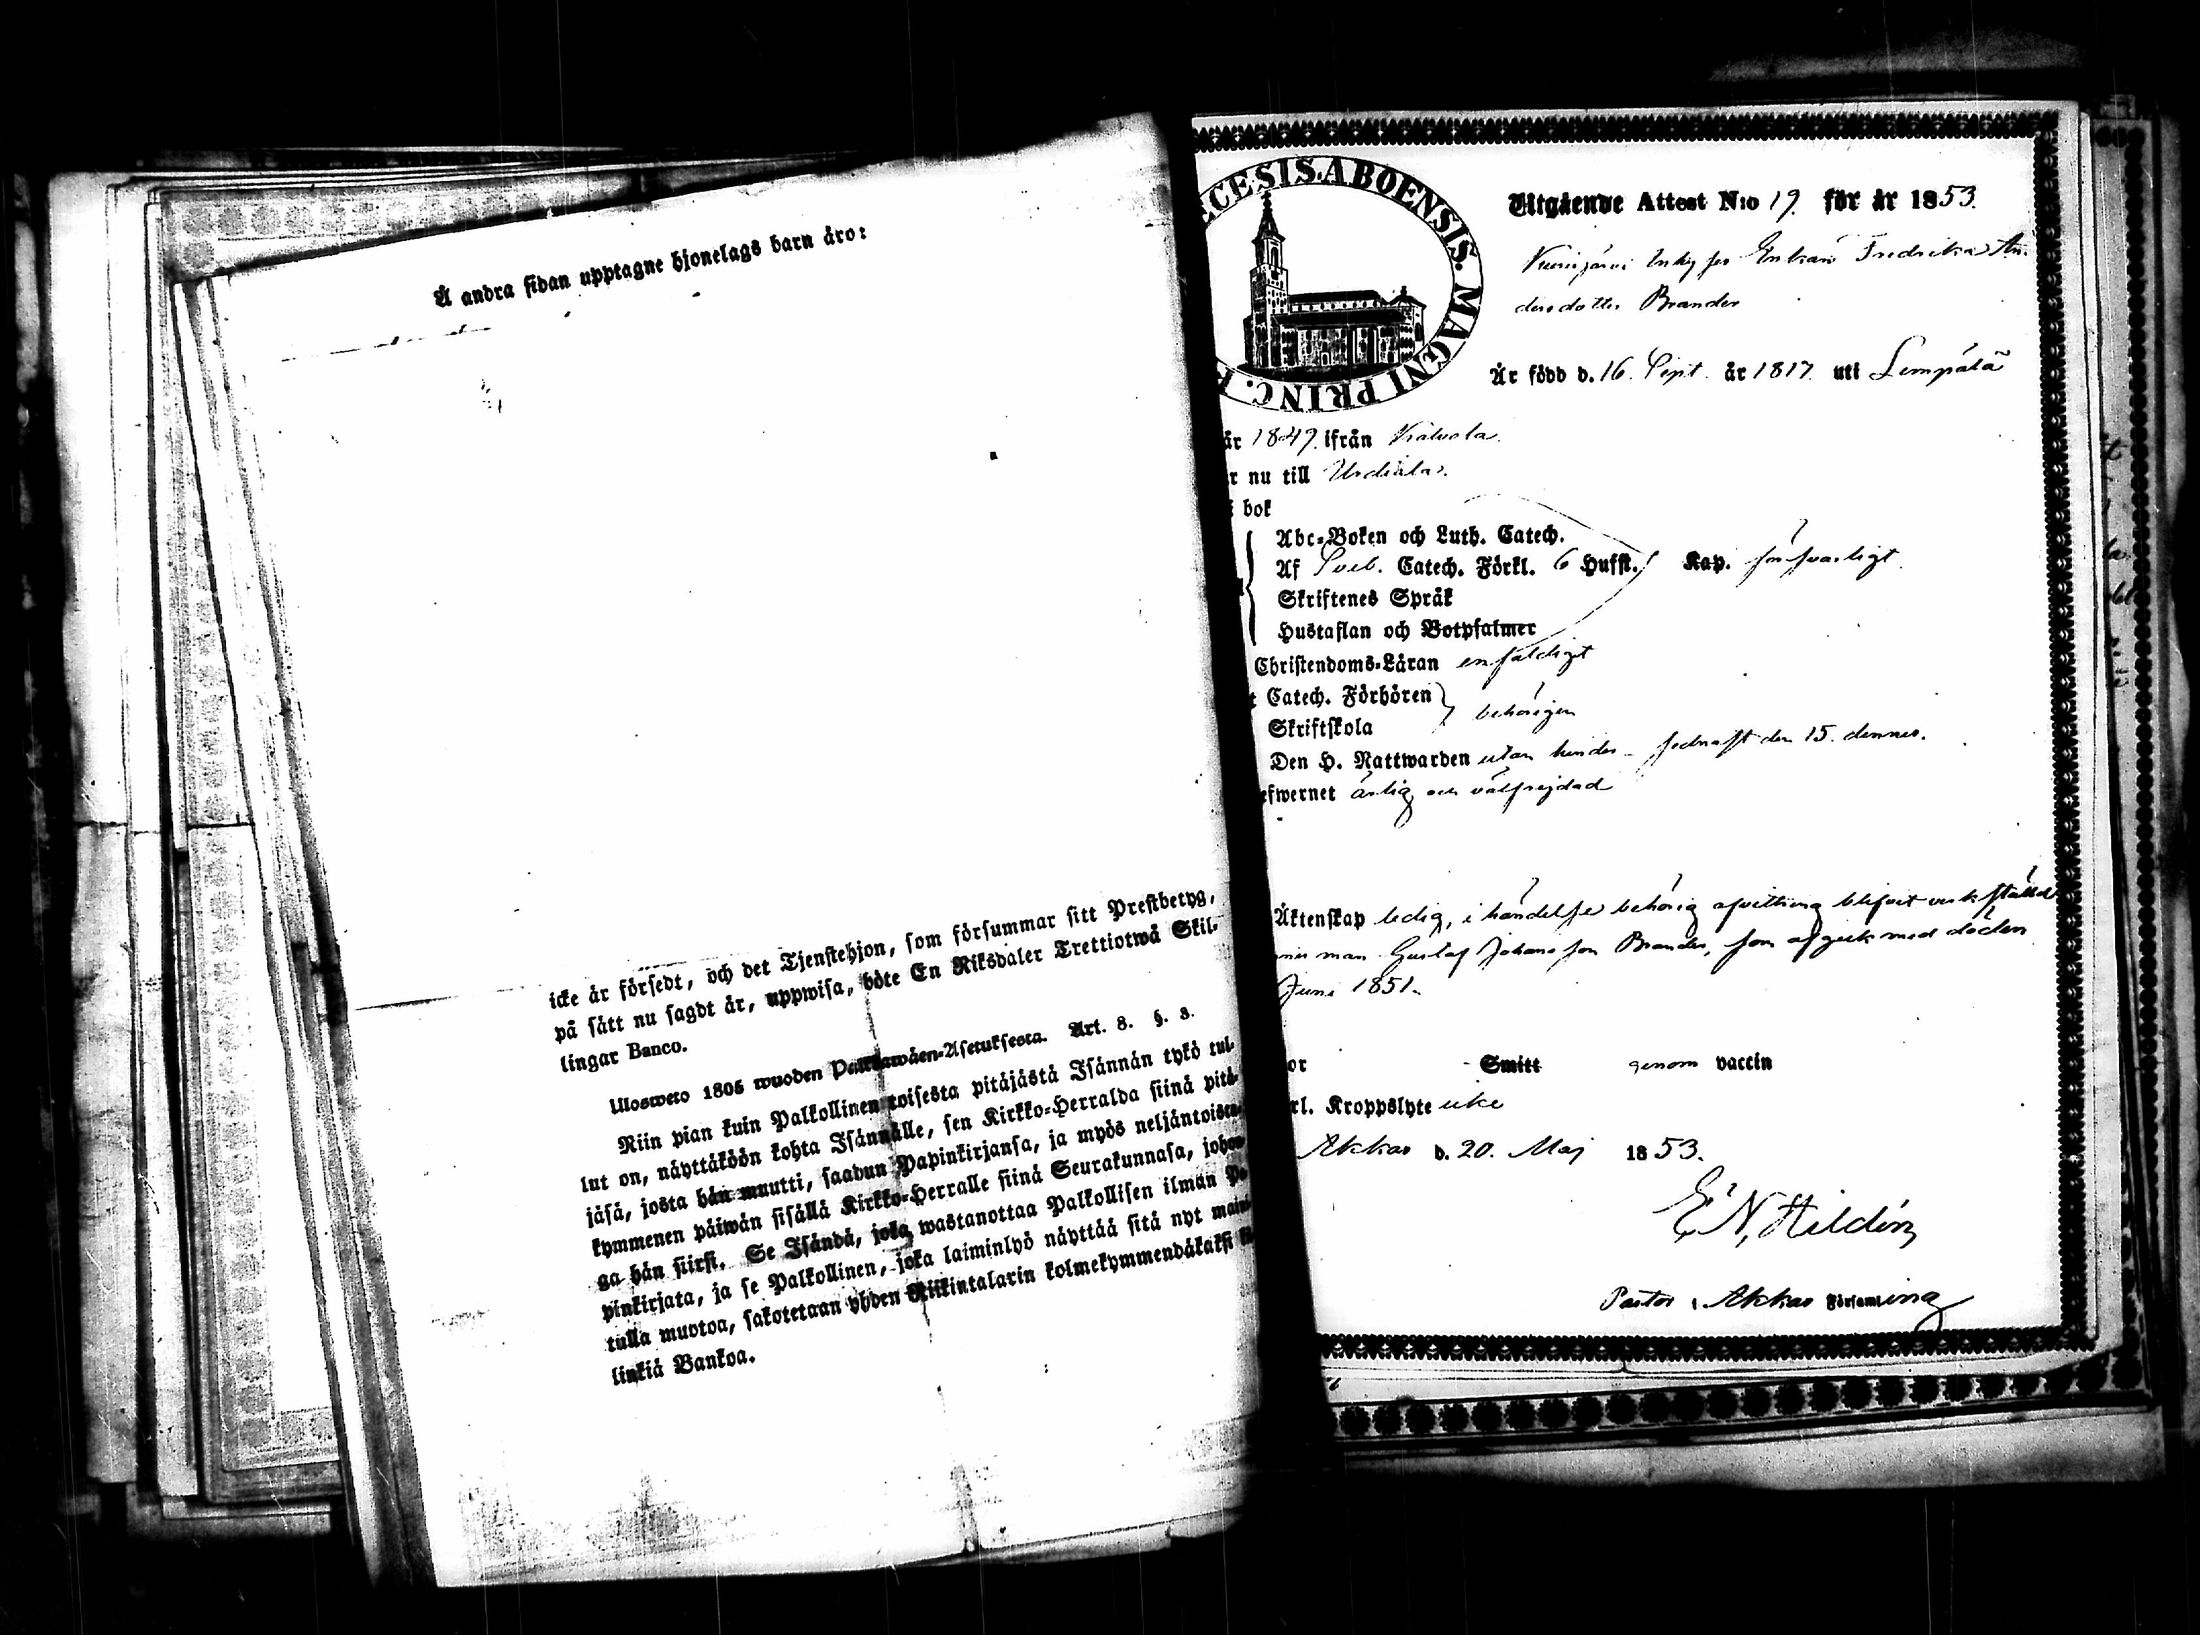 Å andra sidan upptagne hjonelags barn äro:
icke är försedt, och det Tjenstehjon, som försummar sitt Prestbetyg,
på sätt nu sagdt är, uppwisa, böte En Riksdaler Trettiotwå Skil-
lingar Banco.
Ulosweto 1805 wuoden Palkkawäen-Asetuksesta. Art. 8. §. 3.
Niin pian kuin Palkollinen toisesta pitäjästä Isännän tykö tul-
lut on, näyttäköön kohta Isännälle, sen Kirkko-Herralda siinä pitä-
jäsä, josta hän muutti, saadun Papinkirjansa, ja myös neljäntoista-
kymmenen päiwän sisällä Kirkko-Herralle siinä Seurakunnasa, johon-
ga hän siirsi. Se Isändä, joka wastanottaa Palkollisen ilman Pa-
pinkirjata, ja se Palkollinen, joka laiminlyö näyttää sitä nyt maini-
tulla muotoa, sakotetaan yhden Riikintalarin kolmekymmendäkaksi
linkiä Bankoa.
ECESIS. ABOENSIS. MAGNI PRINC. F
Utgående Attest N:o 19. för år 1853.
Enkan Fredrika An-
dersdotter Brander
Är född d. 16. Sept. år 1817. uti Lempälä
år 1849. ifrån Kalvola
r nu till Urdiala.
i bok
Abc-Boken och Luth. Catech.
Af Sveb. Catech. Förkl. 6 Hufst. Kap. försvarligt
Skriftenes Språk
Hustaflan och Botpsalmer
Christendoms-Läran enfaldigt
t Catech. Förhören
Skriftskola
behörigen
Den H. Nattwarden utan hinder sednast den 15. dennes.
efwernet ärlig och välfrejdad
Äktenskap ledig, i händelse behörig afvittring blifvit verkställd
man Gustaf Johansson Brander, som afgick med döden
Juni 1851.
or Smitt genom vaccin
rl. Kroppslyte icke
Akkas d. 20. Maj 1853.
E N, Hildén
Pastor i Akkas Församling